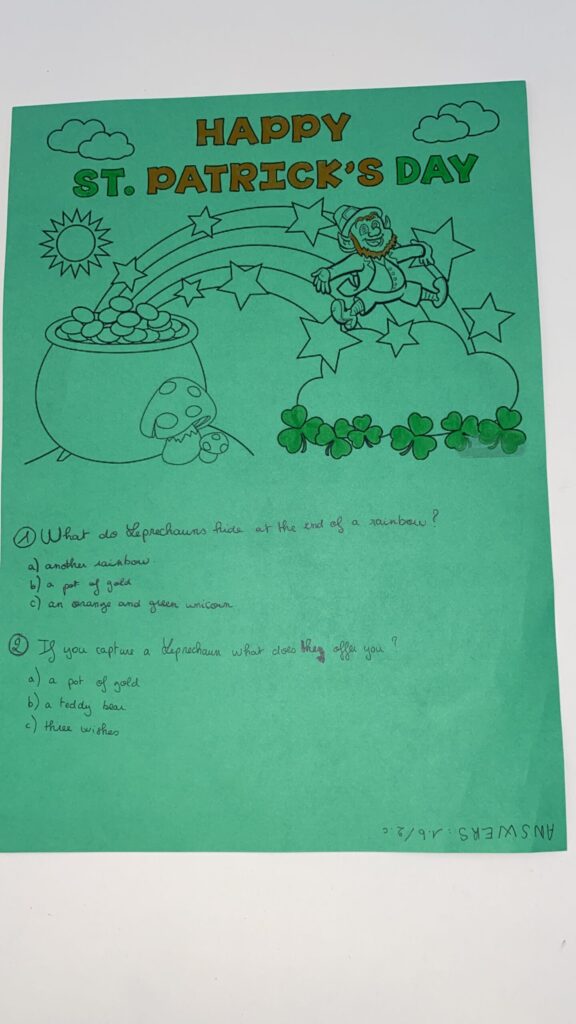 HAPPY
ST. PATRICK'S DAY
① What do Leprechauns hide at the end of a rainbow?
a) another rainbow
b) a pot of gold
c) an orange and green unicorn
② If you capture a Leprechaun what does they offer you?
a) a pot of gold
b) a teddy bear
c) three wishes
ANSWERS: 1.b/2.c